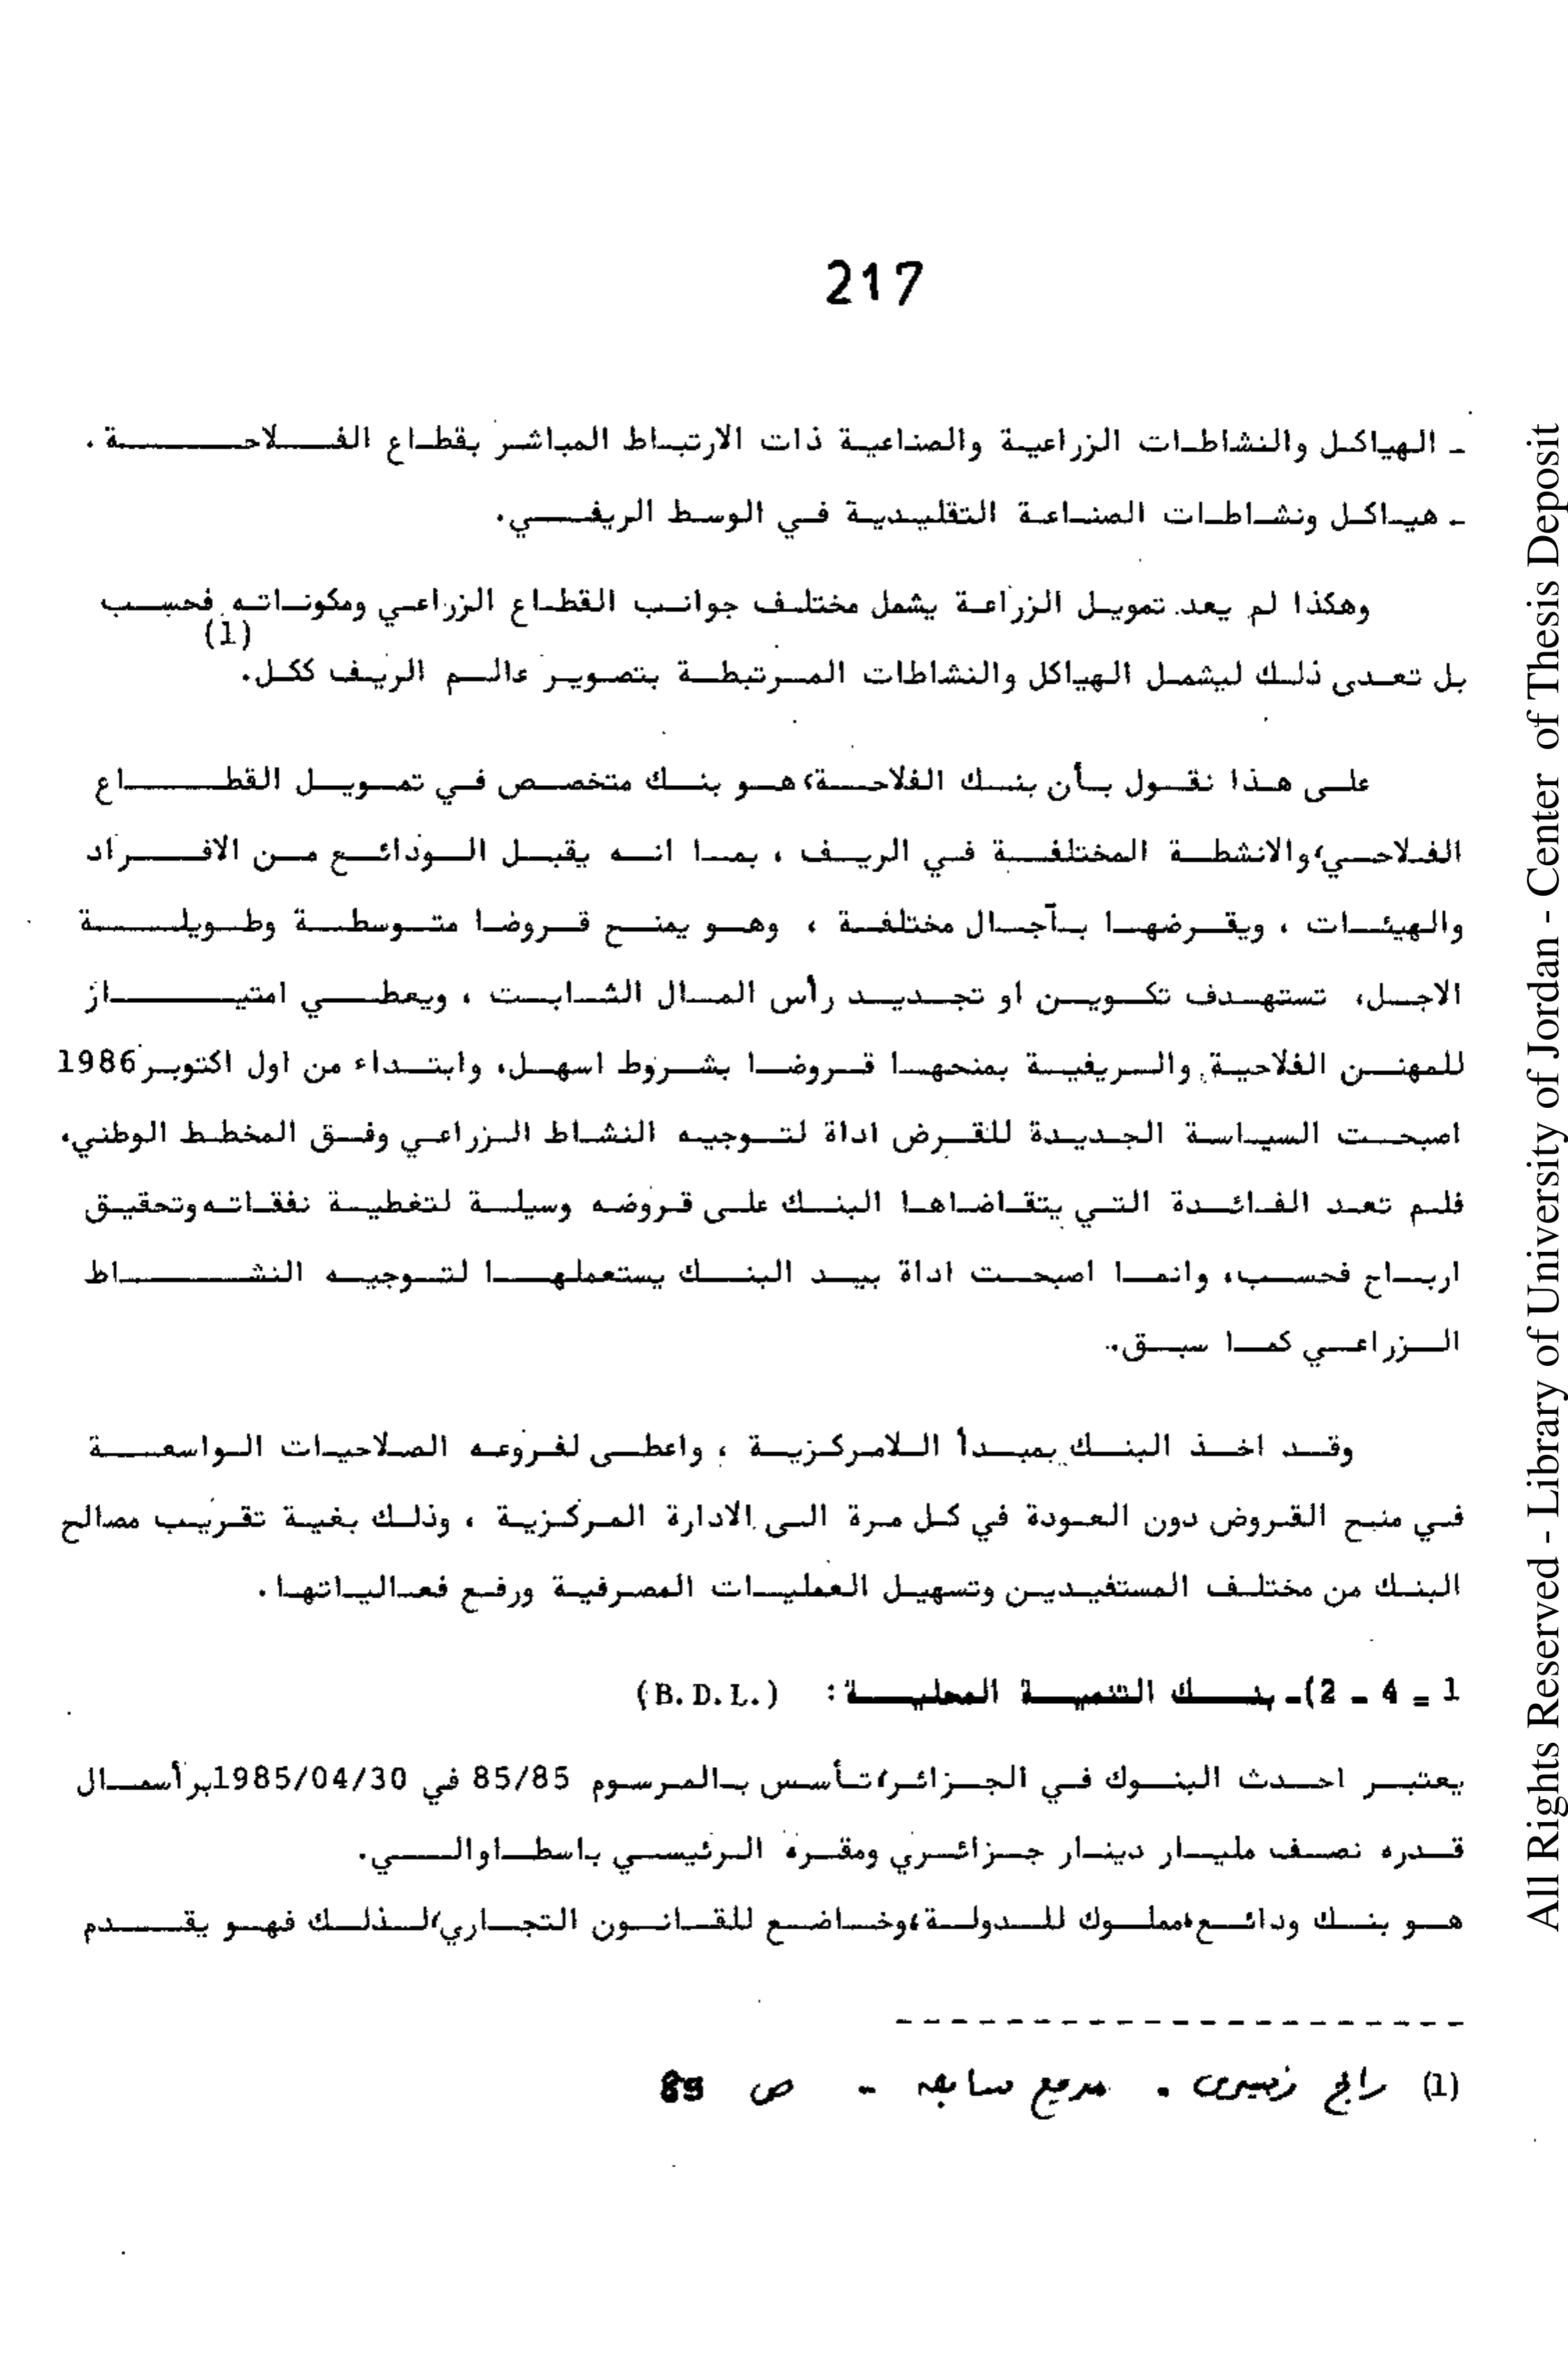 217
ـ الهياكل والنشاطات الزراعية والصناعية ذات الارتباط المباشر بقطاع الفلاحة .
ـ هياكل ونشاطات الصناعة التقليدية في الوسط الريفي.
وهكذا لم يعد تمويل الزراعة يشمل مختلف جوانب القطاع الزراعي ومكوناته فحسب
بل تعدى ذلك ليشمل الهياكل والنشاطات المرتبطة بتصوير عالم الريف ككل.(1)
على هذا نقول بأن بنك الفلاحة، هو بنك متخصص في تمويل القطاع
الفلاحي، والانشطة المختلفة في الريف ، بما انه يقبل الودائع من الافراد
والهيئات ، ويقرضها بآجال مختلفة ، وهو يمنح قروضا متوسطة وطويلة
الاجل، تستهدف تكوين او تجديد رأس المال الثابت ، ويعطي امتياز
للمهن الفلاحية والريفية بمنحها قروضا بشروط اسهل، وابتداء من اول اكتوبر 1986
اصبحت السياسة الجديدة للقرض اداة لتوجيه النشاط الزراعي وفق المخطط الوطني،
فلم تعد الفائدة التي يتقاضاها البنك على قروضه وسيلة لتغطية نفقاته وتحقيق
ارباح فحسب، وانما اصبحت اداة بيد البنك يستعملها لتوجيه النشاط
الزراعي كما سبق.
وقد اخذ البنك بمبدأ اللامركزية ، واعطى لفروعه الصلاحيات الواسعة
في منح القروض دون العودة في كل مرة الى الادارة المركزية ، وذلك بغية تقريب مصالح
البنك من مختلف المستفيدين وتسهيل العمليات المصرفية ورفع فعالياتها .
1 = 4 - 2)- بنك التنمية المحلية : (B.D.L.)
يعتبر احدث البنوك في الجزائر، تأسس بالمرسوم 85/85 في 1985/04/30 برأسمال
قدره نصف مليار دينار جزائري ومقره الرئيسي باسطاوالي.
هو بنك ودائع، مملوك للدولة، وخاضع للقانون التجاري، لذلك فهو يقدم
(1) رابح زبيري . مرجع سابق - ص 89
All Rights Reserved - Library of University of Jordan - Center of Thesis Deposit